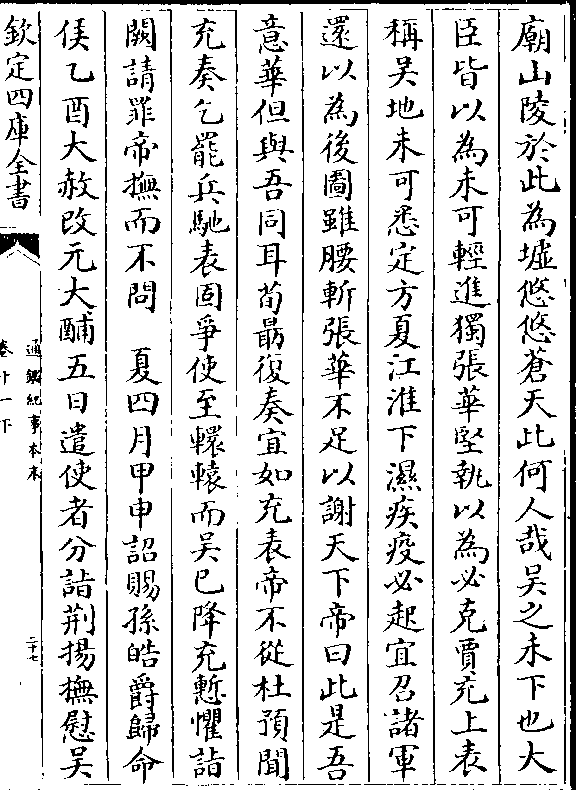 廟山陵於此為墟悠悠蒼天此何人哉吳之未下也大
臣皆以為未可輕進獨張華堅執以為必克賈充上表
稱吳地未可悉定方夏江淮下濕疾疫必起宜召諸軍
還以為後圖雖腰斬張華不足以謝天下帝曰此是吾
意華但與吾同耳荀勗復奏宜如充表帝不從杜預聞
充奏乞罷兵馳表固爭使至轘轅而吳已降充慙懼詣
闕請罪帝撫而不問　夏四月甲申詔賜孫皓爵歸命
侯乙酉大赦改元大酺五日遣使者分詣荆揚撫慰吳
欽定四庫全書
通鑑紀事本末
卷十一下
二十七